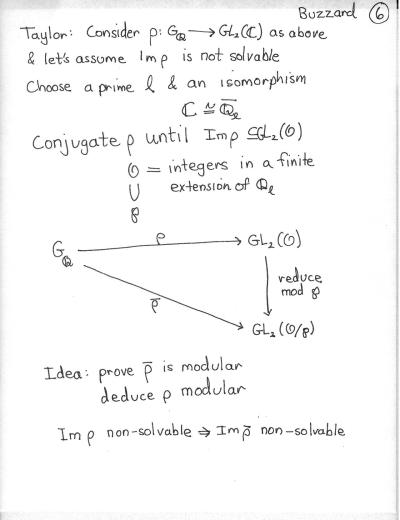 Buzzard ⑥
Taylor: Consider ρ: G_ℚ → GL₂(ℂ) as above
& let's assume Im ρ is not solvable
Choose a prime ℓ & an isomorphism
ℂ ≃ ℚ̅_ℓ
Conjugate ρ until Im ρ ⊆ GL₂(𝒪)
𝒪 = integers in a finite
∪ extension of ℚ_ℓ
℘
G_ℚ ρ → GL₂(𝒪)
reduce
mod ℘
ρ̅
GL₂(𝒪/℘)
Idea: prove ρ̅ is modular
deduce ρ modular
Im ρ non-solvable ⇒ Im ρ̅ non-solvable